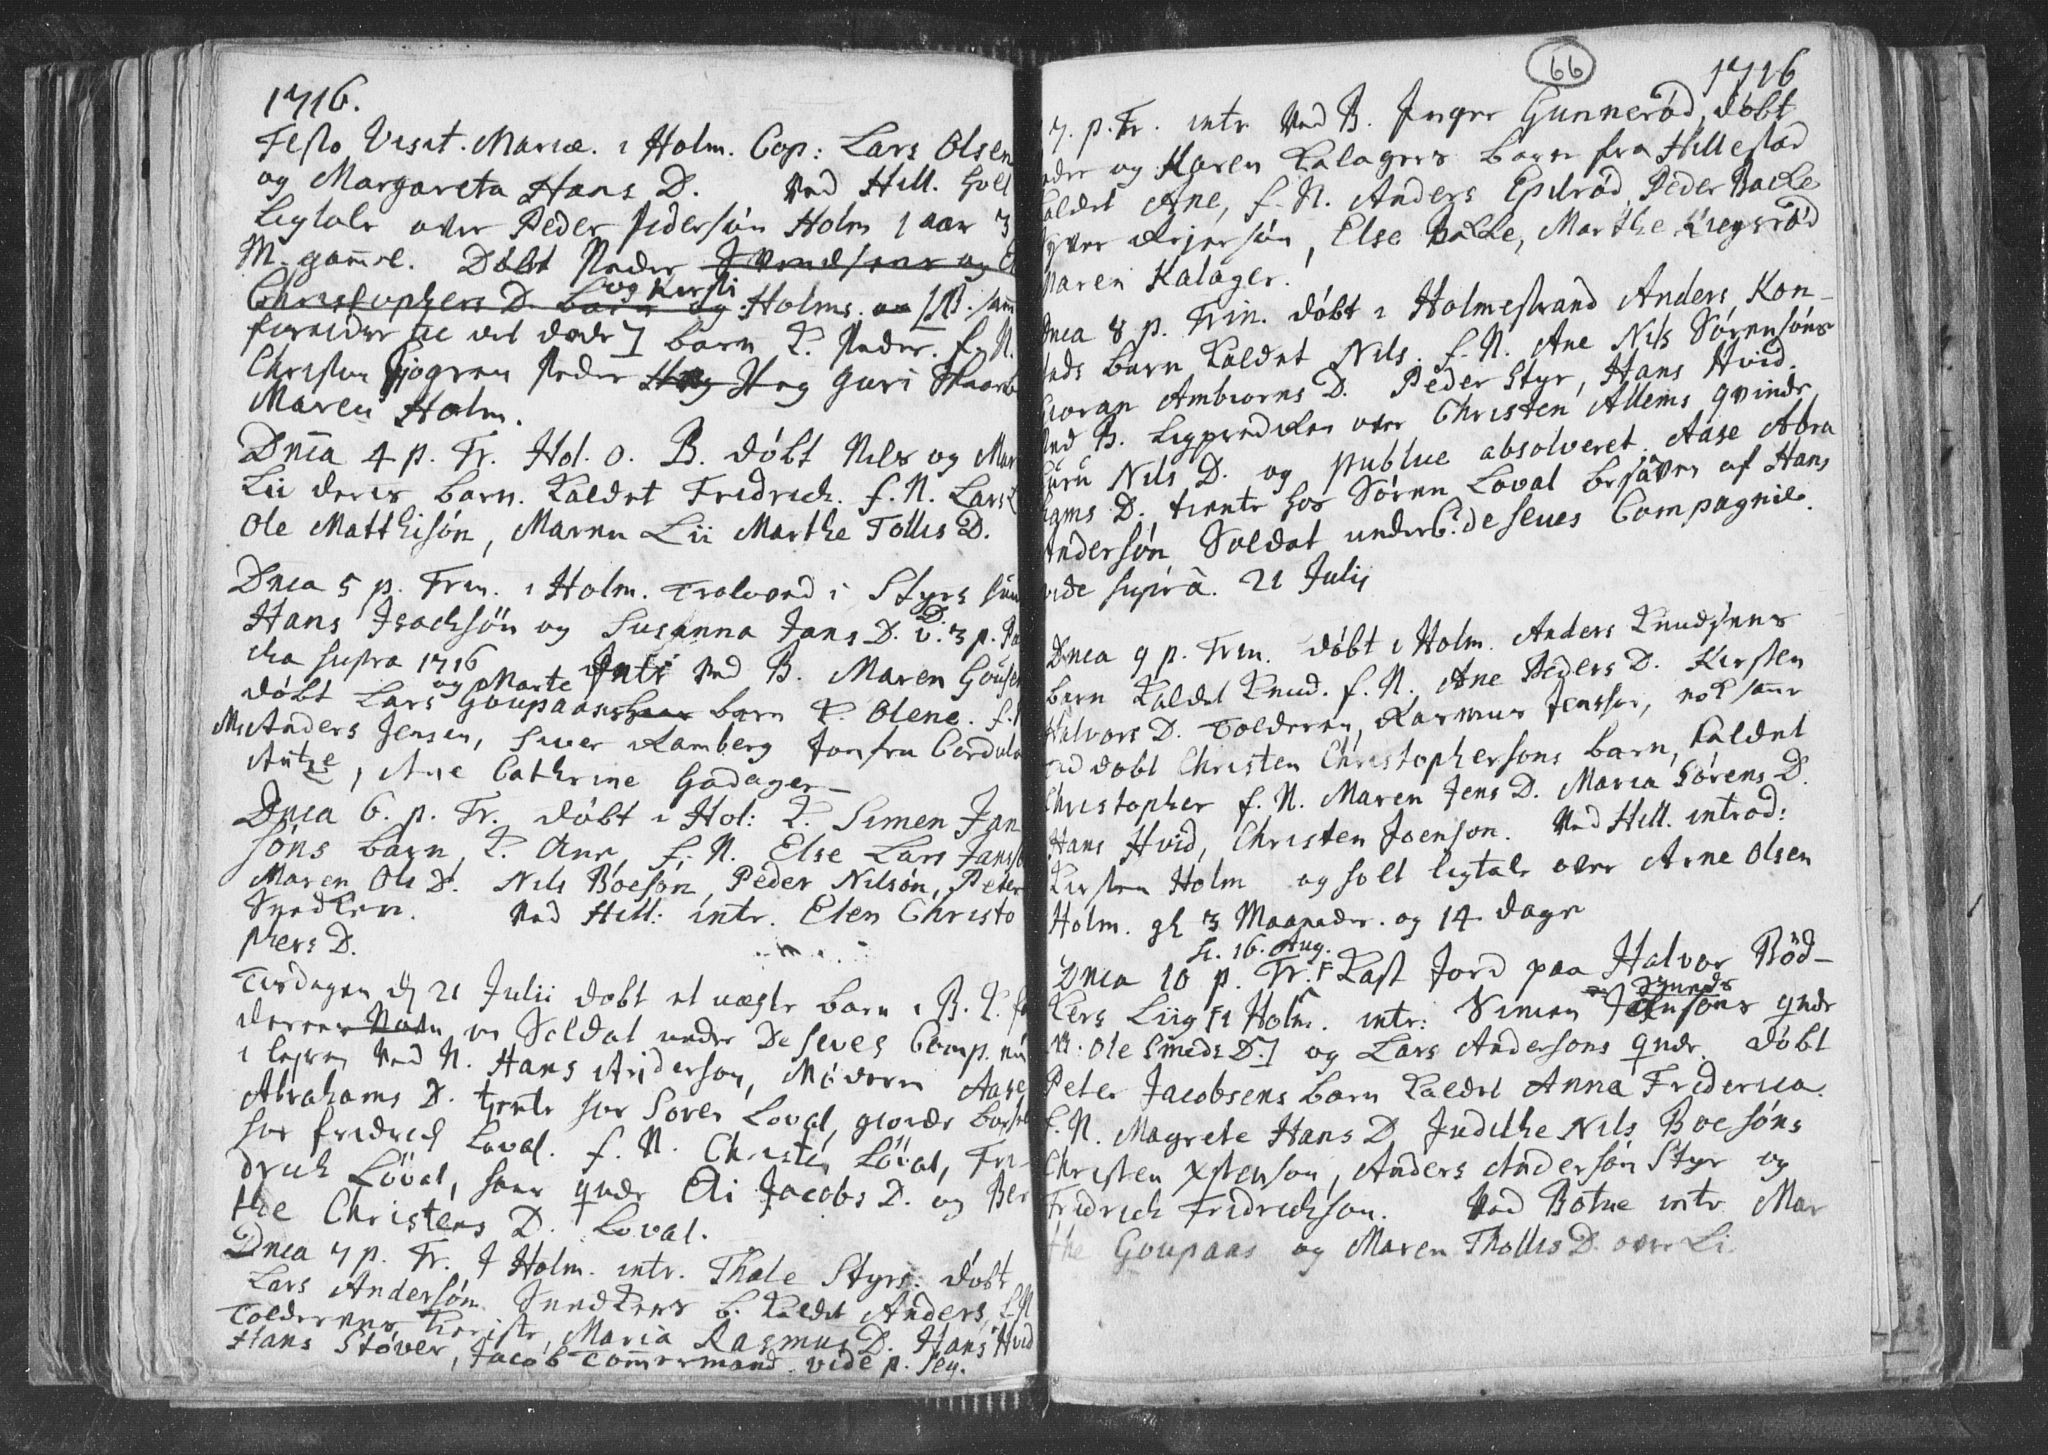 1716.
Festo Visit. Mariæ. i Holm. Cop: Lars Olsen
og Margareta Hans D. Ved Hill. holt
Ligtale over Peder Pedersøn Holm 1 aar 3
M. gam̄el. Døbt Peder Svendsens og
Christophers D. barn og Holms. [NB.
og Kirsti
forælder ] barn K. Peder. f. N.
Christen Peder Hæg Hæg Guri
Maren Holm.
Dn̄ia 4 p. Tr. Hol. o. B. døbt Nils og Mar
Lii deris barn. Kaldet Fridrich. f. N. Lars
Ole Matthisøn, Maren Lii Marthe Tollis D.
Dnica 5 p. Trin. i Holm. Troloved i Styrs
Hans Isachsøn og Susanna Jans D. v. 3 p.
D.
supra 1716 Intr ved B. Maren
døbt Lars Goupaas barn K. Olene. f. N
og Marte
Ms Anders Jensen, Siver Ramberg Jomfru Cordula
, Ane Cathrine Gadager
Dnica 6. p. Tr. døbt i Hol: K. Simen Jan
søns barn, K. Ane, f. N. Else Lars
Maren Ols D. Nils Boesøn, Peder Nilsøn, Peter
Snedker. Ved Hill: intr. Elen Christo
phers D.
Tisdagen d 21 Julii døbt et uægte barn i B. K.
deren en Soldat under De Seves Comp. nu
i leyren Ved N. Hans Anderson, Moderen Aase
Abrahams D. tjente hos Soren Loval, giorde barsel
hos fridrich Loval. f. N. Christen Løval, Fri-
drich Løval, hans qvde Eli Jacobs D. og Ber
the Christens D. Loval.
Dnica 7 p. Tr. I Holm. intr. Thale Styrs. døbt
Lars Andersøn Snedkers b. Kaldet Anders, f. N
Tolderens Kieriste, Maria Rasmus D. Hans Hvid
Hans Støver, Jacob Tom̄ermand. vide p. seq.
66
1716
7. p. Tr. intr. Ved B. Inger Gunnerød, døbt
og Karen Kalagers barn fra Hillestad
Kaldet Ane, f. N. Anders Epilrød, Peder Backe
Rejersøn, Else Backe, Marthe
Maren Kalager.
Dnica 8 p. Trin. døbt i Holmestrand Anders Kon-
barn Kaldet Nils. f. N. Ane Nils Sørensøns
Gioran Ambiørns D. Peder Styr, Hans Hvid.
Ved B. Ligprediken over Christen Allems qvinde
Guru Nils D. og publice absolveret. Aase Abra
hams D. tiente hos Søren Loval besåven af Hans
Andersøn Soldat under C. de Seues Compagnie.
vide suprà. 21 Julij
Dnica 9 p. Trin. døbt i Holm. Anders Knudsens
barn Kaldet Knud. f. N. Ane Peders D. Kirsten
Halvors D. Tolderen, Rasmus Jenssøn, nok sam̄e
tid døbt Christen Christophersons barn, Kaldet
Christopher f. N. Maren Jens D. Maria Sørens D.
Hans Hvid, Christen Joenson. Ved Hill. introd:
Kirsten Holm og holt ligtale over Arne Olsen
Holm. gl 3 Maaneder. og 14 dage
d. 16. Aug.
Dnica 10 p. Tr. Kast Jord paa Halvor Bød-
Kers Liig i Holm. intr: Simen Jensøns qvde
Ole Smeds D.] og Lars Andersøns qvde. døbt
Peter Jacobsens barn Kaldet Anna Friderica.
f. N. Magrete Hans D. Judithe Nils Boesøns
Christen Xstenson, Anders Andersøn Styr og
Fridrich Fridrichson. Ved Botne intr. Mar
the Goupaas og Maren Thollis D. over Li.